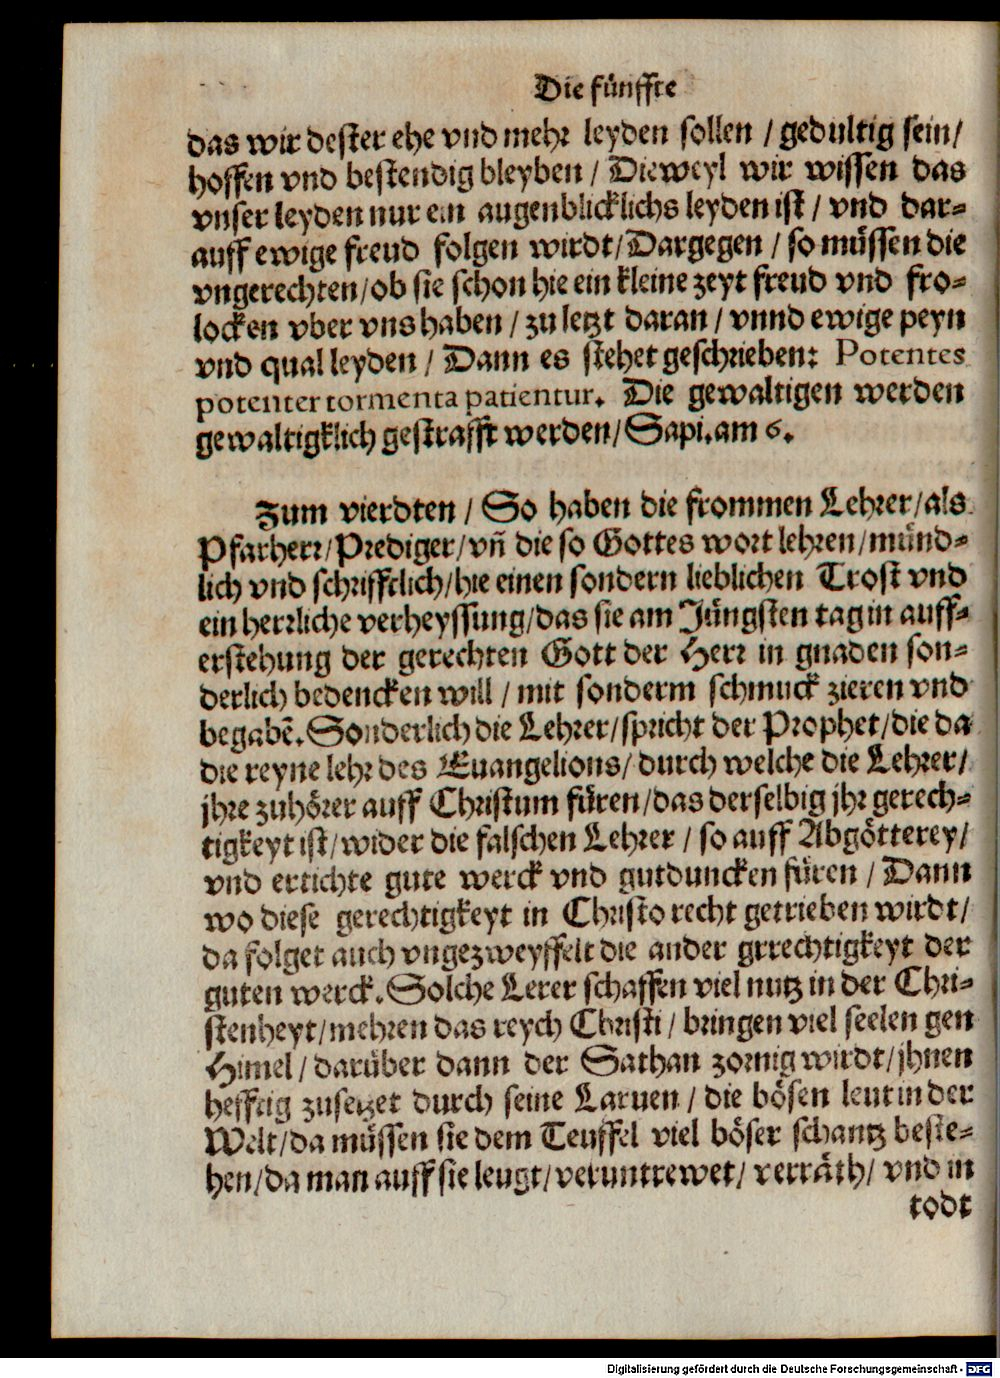 Die fünffte
das wir dester ehe vnd mehr leyden sollen / gedultig sein/
hoffen vnd bestendig bleyben / Dieweyl wir wissen das
vnser leyden nur ein augenblicklichs leyden ist / vnd dar-
auff ewige freud folgen wirdt/ Dargegen / so müssen die
vngerechten/ob sie schon hie ein kleine zeyt freud vnd fro-
locken vber vns haben / zu letzt daran / vnnd ewige peyn
vnd qual leyden / Dann es stehet geschrieben: Potentes
potenter tormenta patientur. Die gewaltigen werden
gewaltigklich gestrafft werden/ Sapi.am 6.
Zum vierdten / So haben die frommen Lehrer/als
Pfarherr/Prediger/vñ die so Gottes wort lehren/münd-
lich vnd schrifftlich/hie einen sondern lieblichen Trost vnd
ein herrliche verheyssung/das sie am Jüngsten tag in auff-
erstehung der gerechten Gott der Herr in gnaden son-
derlich bedencken will / mit sonderm schmuck zieren vnd
begabē. Sonderlich die Lehrer/spricht der Prophet/die da
die reyne lehr des Euangelions/ durch welche die Lehrer/
jhre zuhörer auff Christum füren/das derselbig jhr gerech-
tigkeyt ist/wider die falschen Lehrer / so auff Abgötterey/
vnd ertichte gute werck vnd gutduncken füren / Dann
wo diese gerechtigkeyt in Christo recht getrieben wirdt/
da folget auch vngezweyffelt die ander grrechtigkeyt der
guten werck. Solche Lerer schaffen viel nutz in der Chri-
stenheyt/mehren das reych Christi / bringen viel seelen gen
Himel / darüber dann der Sathan zornig wirdt/jhnen
hefftig zusetzet durch seine Laruen / die bösen leut in der
Welt/da müssen sie dem Teuffel viel böser schantz beste-
hen/da man auff sie leugt/veruntrewet/ verräth/ vnd in
todt
Digitalisierung gefördert durch die Deutsche Forschungsgemeinschaft - DFG